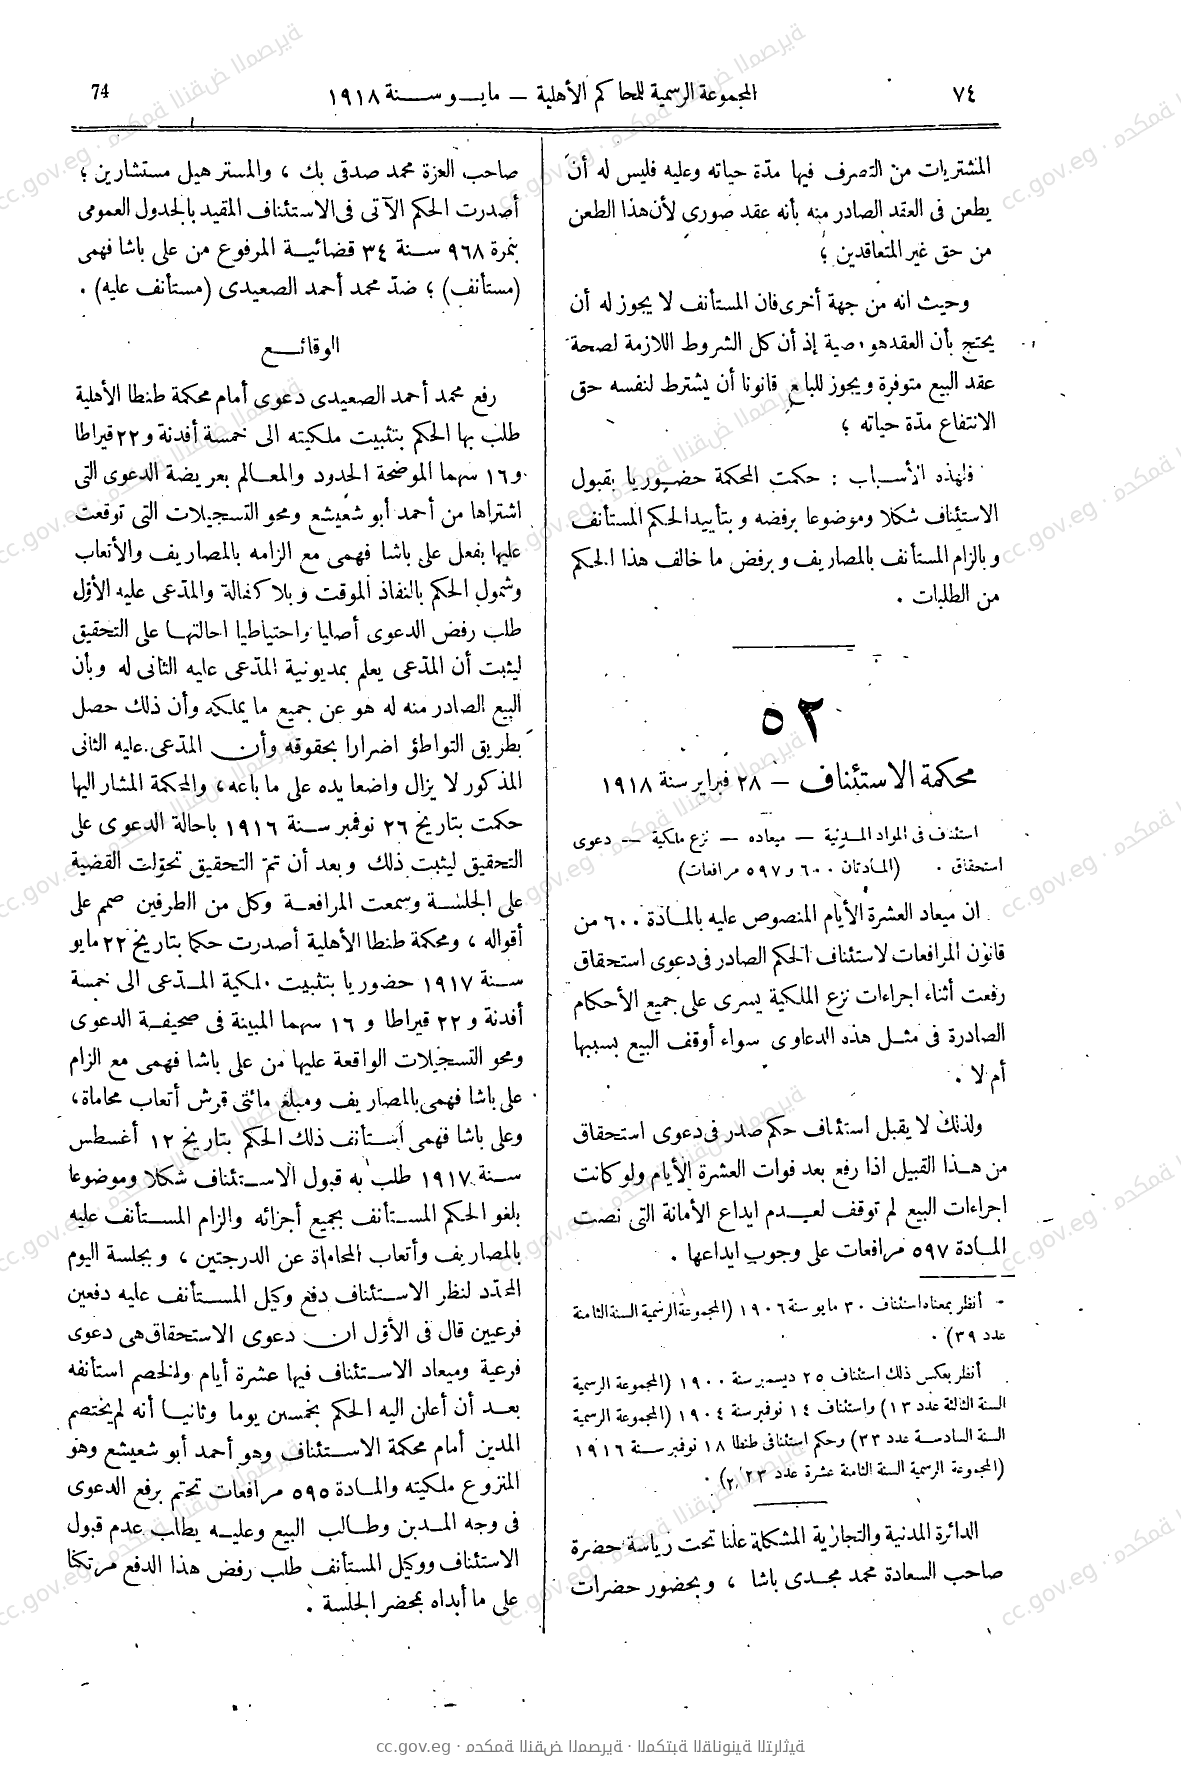 ٧٤
المجموعة الرسمية للمحاكم الأهلية — مايو سنة ١٩١٨
74
المشتريات من التصرف فيها مدّة حياته وعليه فليس له أن
يطعن فى العقد الصادر منه بأنه عقد صورى لأن هذا الطعن
من حق غير المتعاقدين ؛
وحيث انه من جهة أخرى فان المستأنف لا يجوز له أن
يحتج بأن العقد هو وصية إذ أن كل الشروط اللازمة لصحة
عقد البيع متوفرة ويجوز للبائع قانونا أن يشترط لنفسه حق
الانتفاع مدّة حياته ؛
فلهذه الأسباب : حكمت المحكمة حضوريا بقبول
الاستئناف شكلا وموضوعا برفضه وبتأييد الحكم المستأنف
وبالزام المستأنف بالمصاريف وبرفض ما خالف هذا الحكم
من الطلبات .
٥٢
محكمة الاستئناف — ٢٨ فبراير سنة ١٩١٨
استئناف فى المواد المدنية — ميعاده — نزع ملكية — دعوى
استحقاق . (المادتان ٦٠٠ و ٥٩٧ مرافعات)
ان ميعاد العشرة الأيام المنصوص عليه بالمادّة ٦٠٠ من
قانون المرافعات لاستئناف الحكم الصادر فى دعوى استحقاق
رفعت أثناء اجراءات نزع الملكية يسرى على جميع الأحكام
الصادرة فى مثل هذه الدعاوى سواء أوقف البيع بسببها
أم لا .
ولذلك لا يقبل استئناف حكم صدر فى دعوى استحقاق
من هذا القبيل اذا رفع بعد فوات العشرة الأيام ولو كانت
اجراءات البيع لم توقف لعدم ايداع الأمانة التى نصت
المادة ٥٩٧ مرافعات على وجوب ايداعها .
- أنظر بمعناه استئناف ٣٠ مايو سنة ١٩٠٦ (المجموعة الرسمية السنة الثامنة
عدد ٣٩) .
أنظر بعكس ذلك استئناف ٢٥ ديسمبر سنة ١٩٠٠ (المجموعة الرسمية
السنة الثالثة عدد ١٣) واستئناف ١٤ نوفمبر سنة ١٩٠٤ (المجموعة الرسمية
السنة السادسة عدد ٣٣) وحكم استئنافى طنطا ١٨ نوفمبر سنة ١٩١٦
(المجموعة الرسمية السنة الثامنة عشرة عدد ٢٣) .
الدائرة المدنية والتجارية المشكلة علنا تحت رياسة حضرة
صاحب السعادة محمد مجدى باشا ، وبحضور حضرات
صاحب العزة محمد صدقى بك ، والمستر هيل مستشارين ؛
أصدرت الحكم الآتى فى الاستئناف المقيد بالجدول العمومى
بنمرة ٩٦٨ سنة ٣٤ قضائية المرفوع من على باشا فهمى
(مستأنف) ؛ ضدّ محمد أحمد الصعيدى (مستأنف عليه) .
الوقائع
رفع محمد أحمد الصعيدى دعوى أمام محكمة طنطا الأهلية
طلب بها الحكم بتثبيت ملكيته الى خمسة أفدنة و٢٢ قيراطا
و١٦ سهما الموضحة الحدود والمعالم بعريضة الدعوى التى
اشتراها من أحمد أبو شعيشع ومحو التسجيلات التى توقعت
عليها بفعل على باشا فهمى مع الزامه بالمصاريف والأتعاب
وشمول الحكم بالنفاذ الموقت وبلا كفالة والمدّعى عليه الأوّل
طلب رفض الدعوى أصليا واحتياطيا احالتها على التحقيق
ليثبت أن المدّعى يعلم بمديونية المدّعى عليه الثانى له وبأن
البيع الصادر منه له هو عن جميع ما يملكه وأن ذلك حصل
بطريق التواطؤ اضرارا بحقوقه وأن المدّعى عليه الثانى
المذكور لا يزال واضعا يده على ما باعه ، والمحكمة المشار اليها
حكمت بتاريخ ٢٦ نوفمبر سنة ١٩١٦ باحالة الدعوى على
التحقيق ليثبت ذلك وبعد أن تمّ التحقيق تحوّلت القضية
على الجلسة وسمعت المرافعة وكل من الطرفين صمم على
أقواله ، ومحكمة طنطا الأهلية أصدرت حكما بتاريخ ٢٢ مايو
سنة ١٩١٧ حضوريا بتثبيت ملكية المدّعى الى خمسة
أفدنة و ٢٢ قيراطا و ١٦ سهما المبينة فى صحيفة الدعوى
ومحو التسجيلات الواقعة عليها من على باشا فهمى مع الزام
على باشا فهمى بالمصاريف ومبلغ مائتى قرش أتعاب محاماة ،
وعلى باشا فهمى استأنف ذلك الحكم بتاريخ ١٢ أغسطس
سنة ١٩١٧ طلب به قبول الاستئناف شكلا وموضوعا
بلغو الحكم المستأنف بجميع أجزائه والزام المستأنف عليه
بالمصاريف وأتعاب المحاماة عن الدرجتين ، وبجلسة اليوم
المحدّد لنظر الاستئناف دفع وكيل المستأنف عليه دفعين
فرعيين قال فى الأوّل ان دعوى الاستحقاق هى دعوى
فرعية وميعاد الاستئناف فيها عشرة أيام والخصم استأنفه
بعد أن أعلن اليه الحكم بخمسين يوما وثانيا أنه لم يختصم
المدين أمام محكمة الاستئناف وهو أحمد أبو شعيشع وهو
المنزوع ملكيته والمادة ٥٩٥ مرافعات تحتم برفع الدعوى
فى وجه المدين وطالب البيع وعليه يطلب عدم قبول
الاستئناف ووكيل المستأنف طلب رفض هذا الدفع مرتكنا
على ما أبداه بمحضر الجلسة .
cc.gov.eg · محكمة النقض المصرية · المكتبة القانونية التراثية